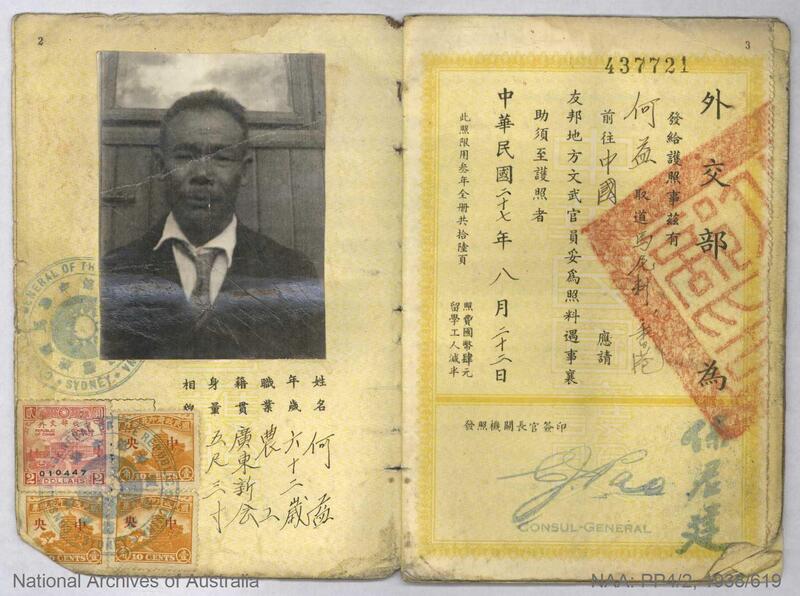 2
GENERAL OF THE
SYDNEY
姓名 何益
年歲 六十二歲
職業 農工
籍貫 廣東新會
身量 五尺三寸
相貌
010447
2 DOLLARS 2
中央
中央
10 CENTS
中央
10 CENTS
3
437721
外交部為
發給護照事茲有
何益 取道馬尼剌,香港
前往中國 應請
友邦地方文武官員妥為照料遇事襄
助須至護照者
中華民國二十七年八月二十二日
此照限用叁年全冊共拾陸頁
照費國幣肆元
留學工人減半
發照機關長官簽印
C. J. Pao
CONSUL-GENERAL
保君建
National Archives of Australia
NAA: PP4/2, 1938/619